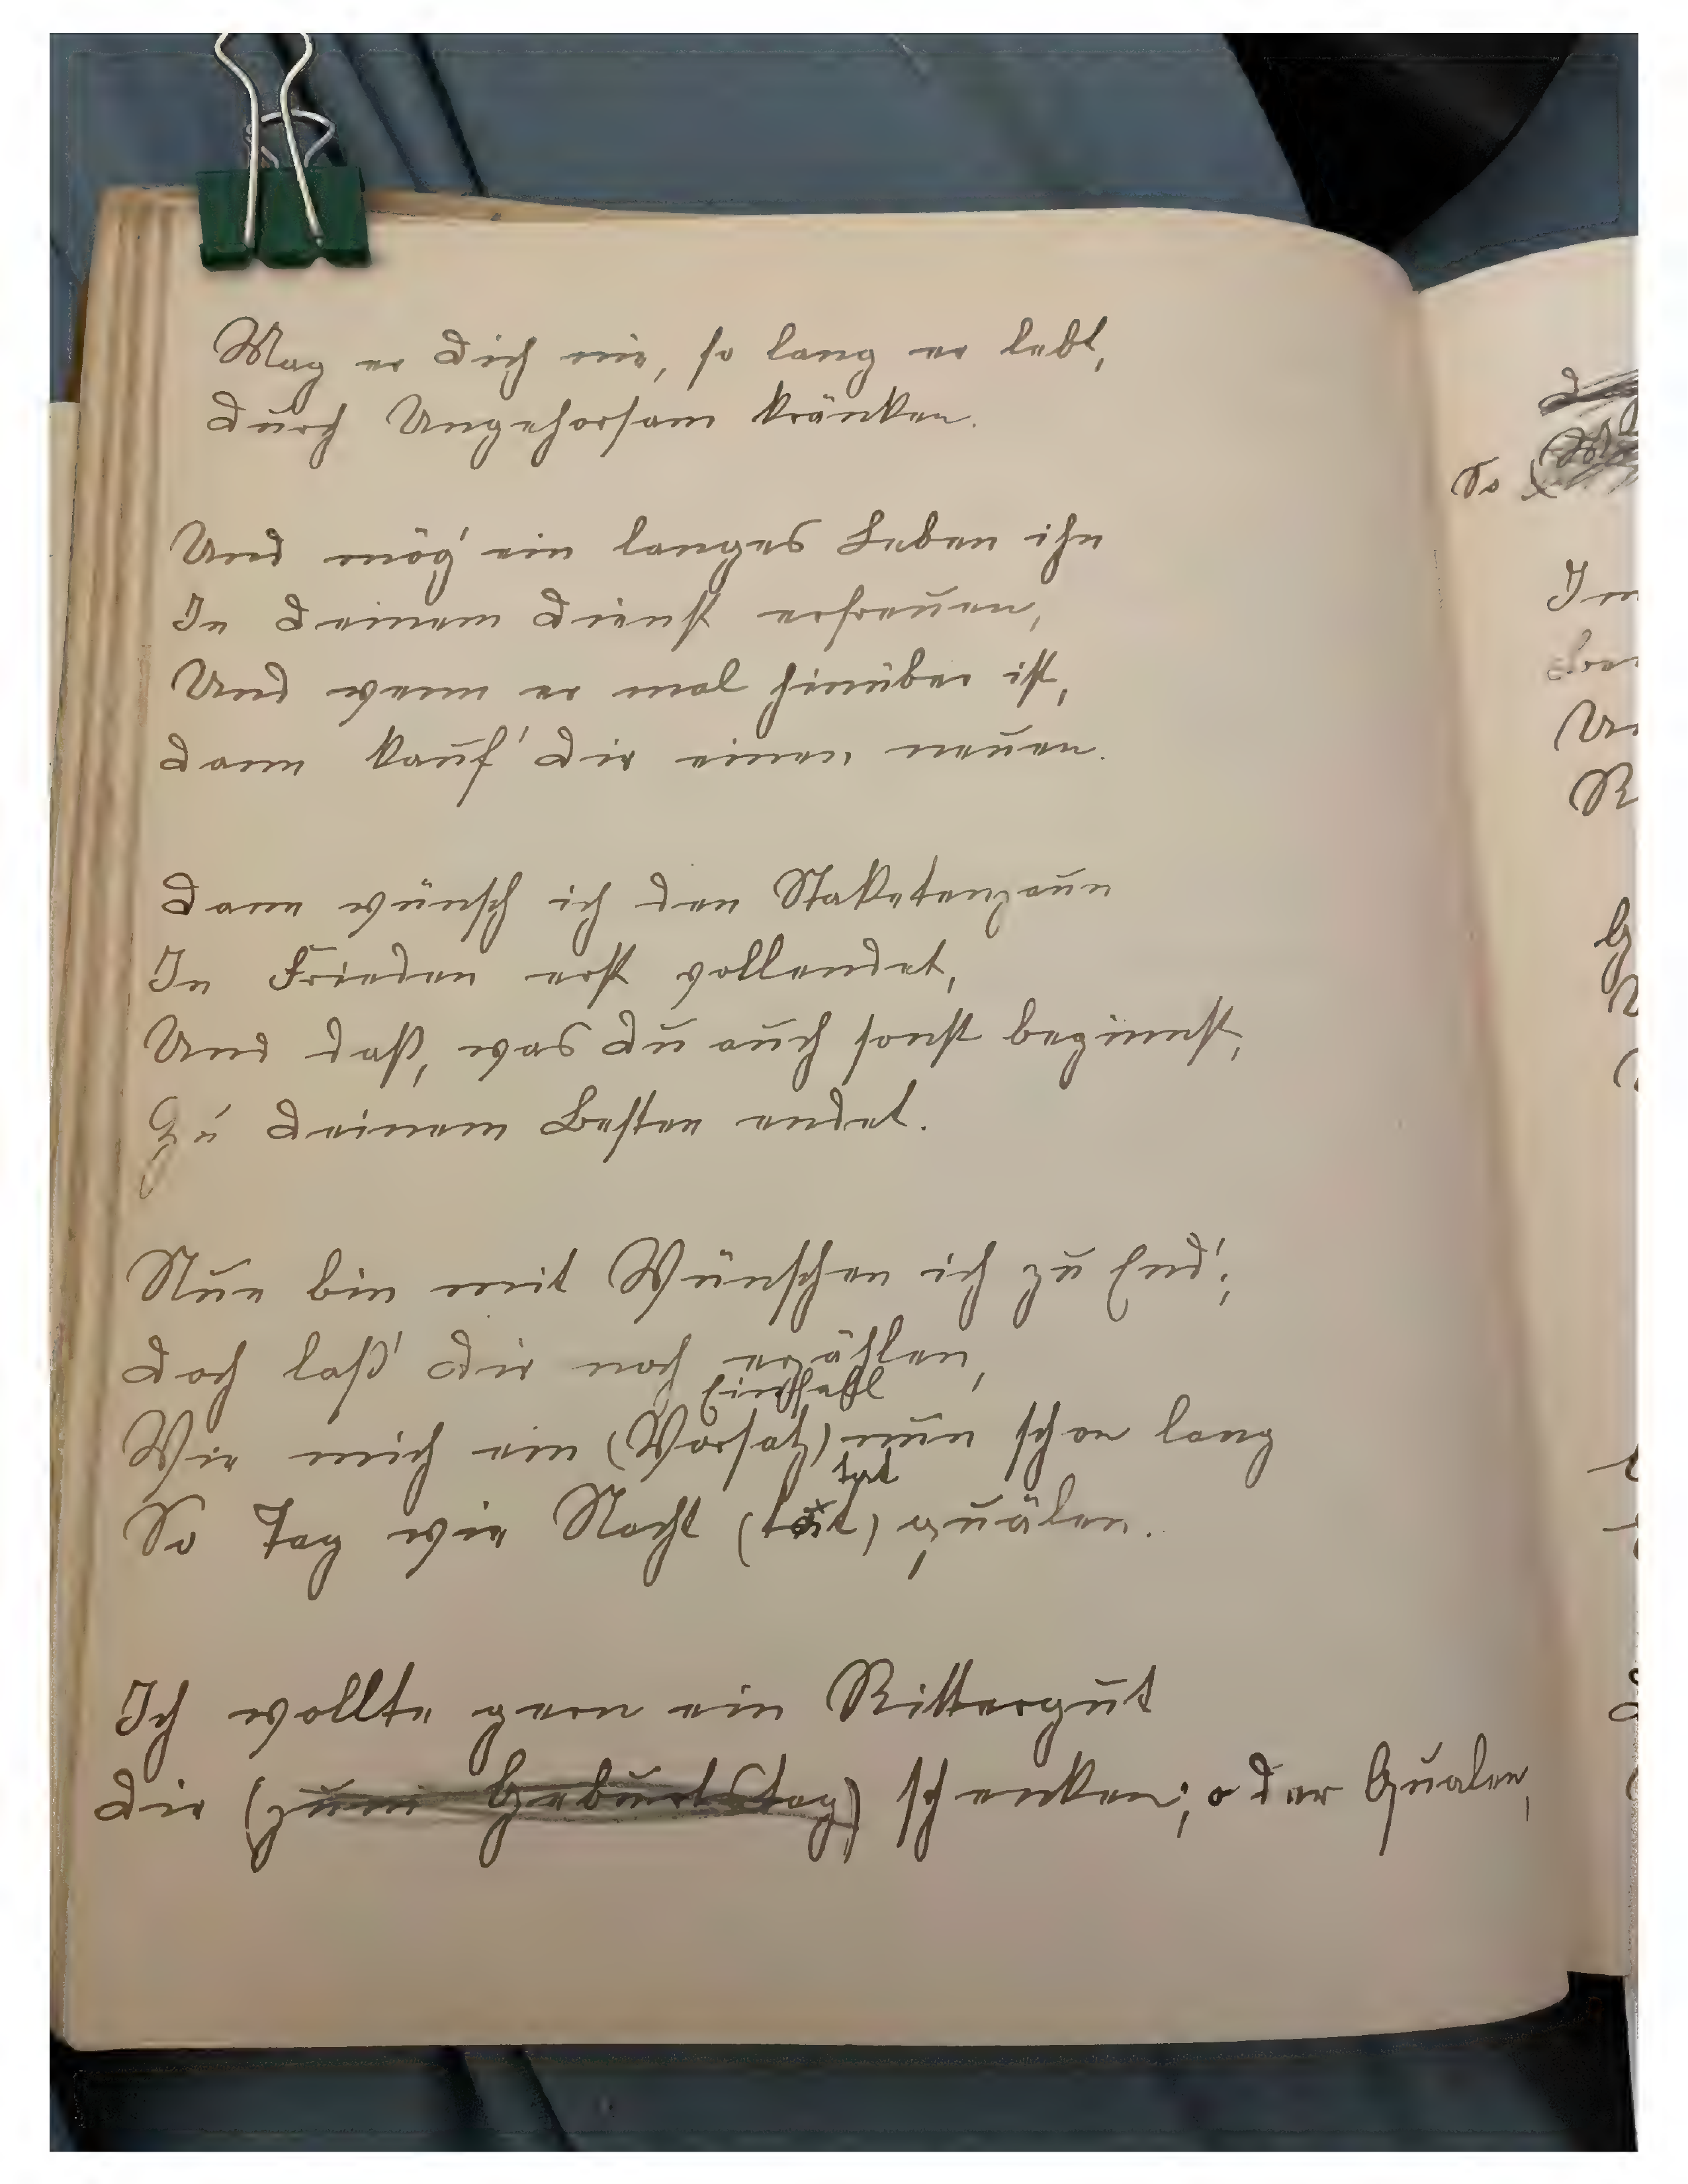 Mag er dich nie, so lang er lebt,
durch Ungehorsam kränken.
Und mög' ein langes Leben ihn
In deinem Dienst erfreuen,
Und wenn er mal hinüber ist,
dann kauf' dir einen neuen.
Dann wünsch ich den Staketenzaun
In Frieden erst vollendet,
Und daß, was du auch sonst beginnst,
Zu deinem Besten endet.
Nun bin mit Wünschen ich zu End';
Doch laß' dir noch erzählen,
Einfall
Wie mich ein (Vorsatz) nun schon lang
tat
So Tag wie Nacht (tät) quälen.
Ich wollte gern ein Rittergut
dir (zum Geburtstag) schenken; o der Qualen,
So